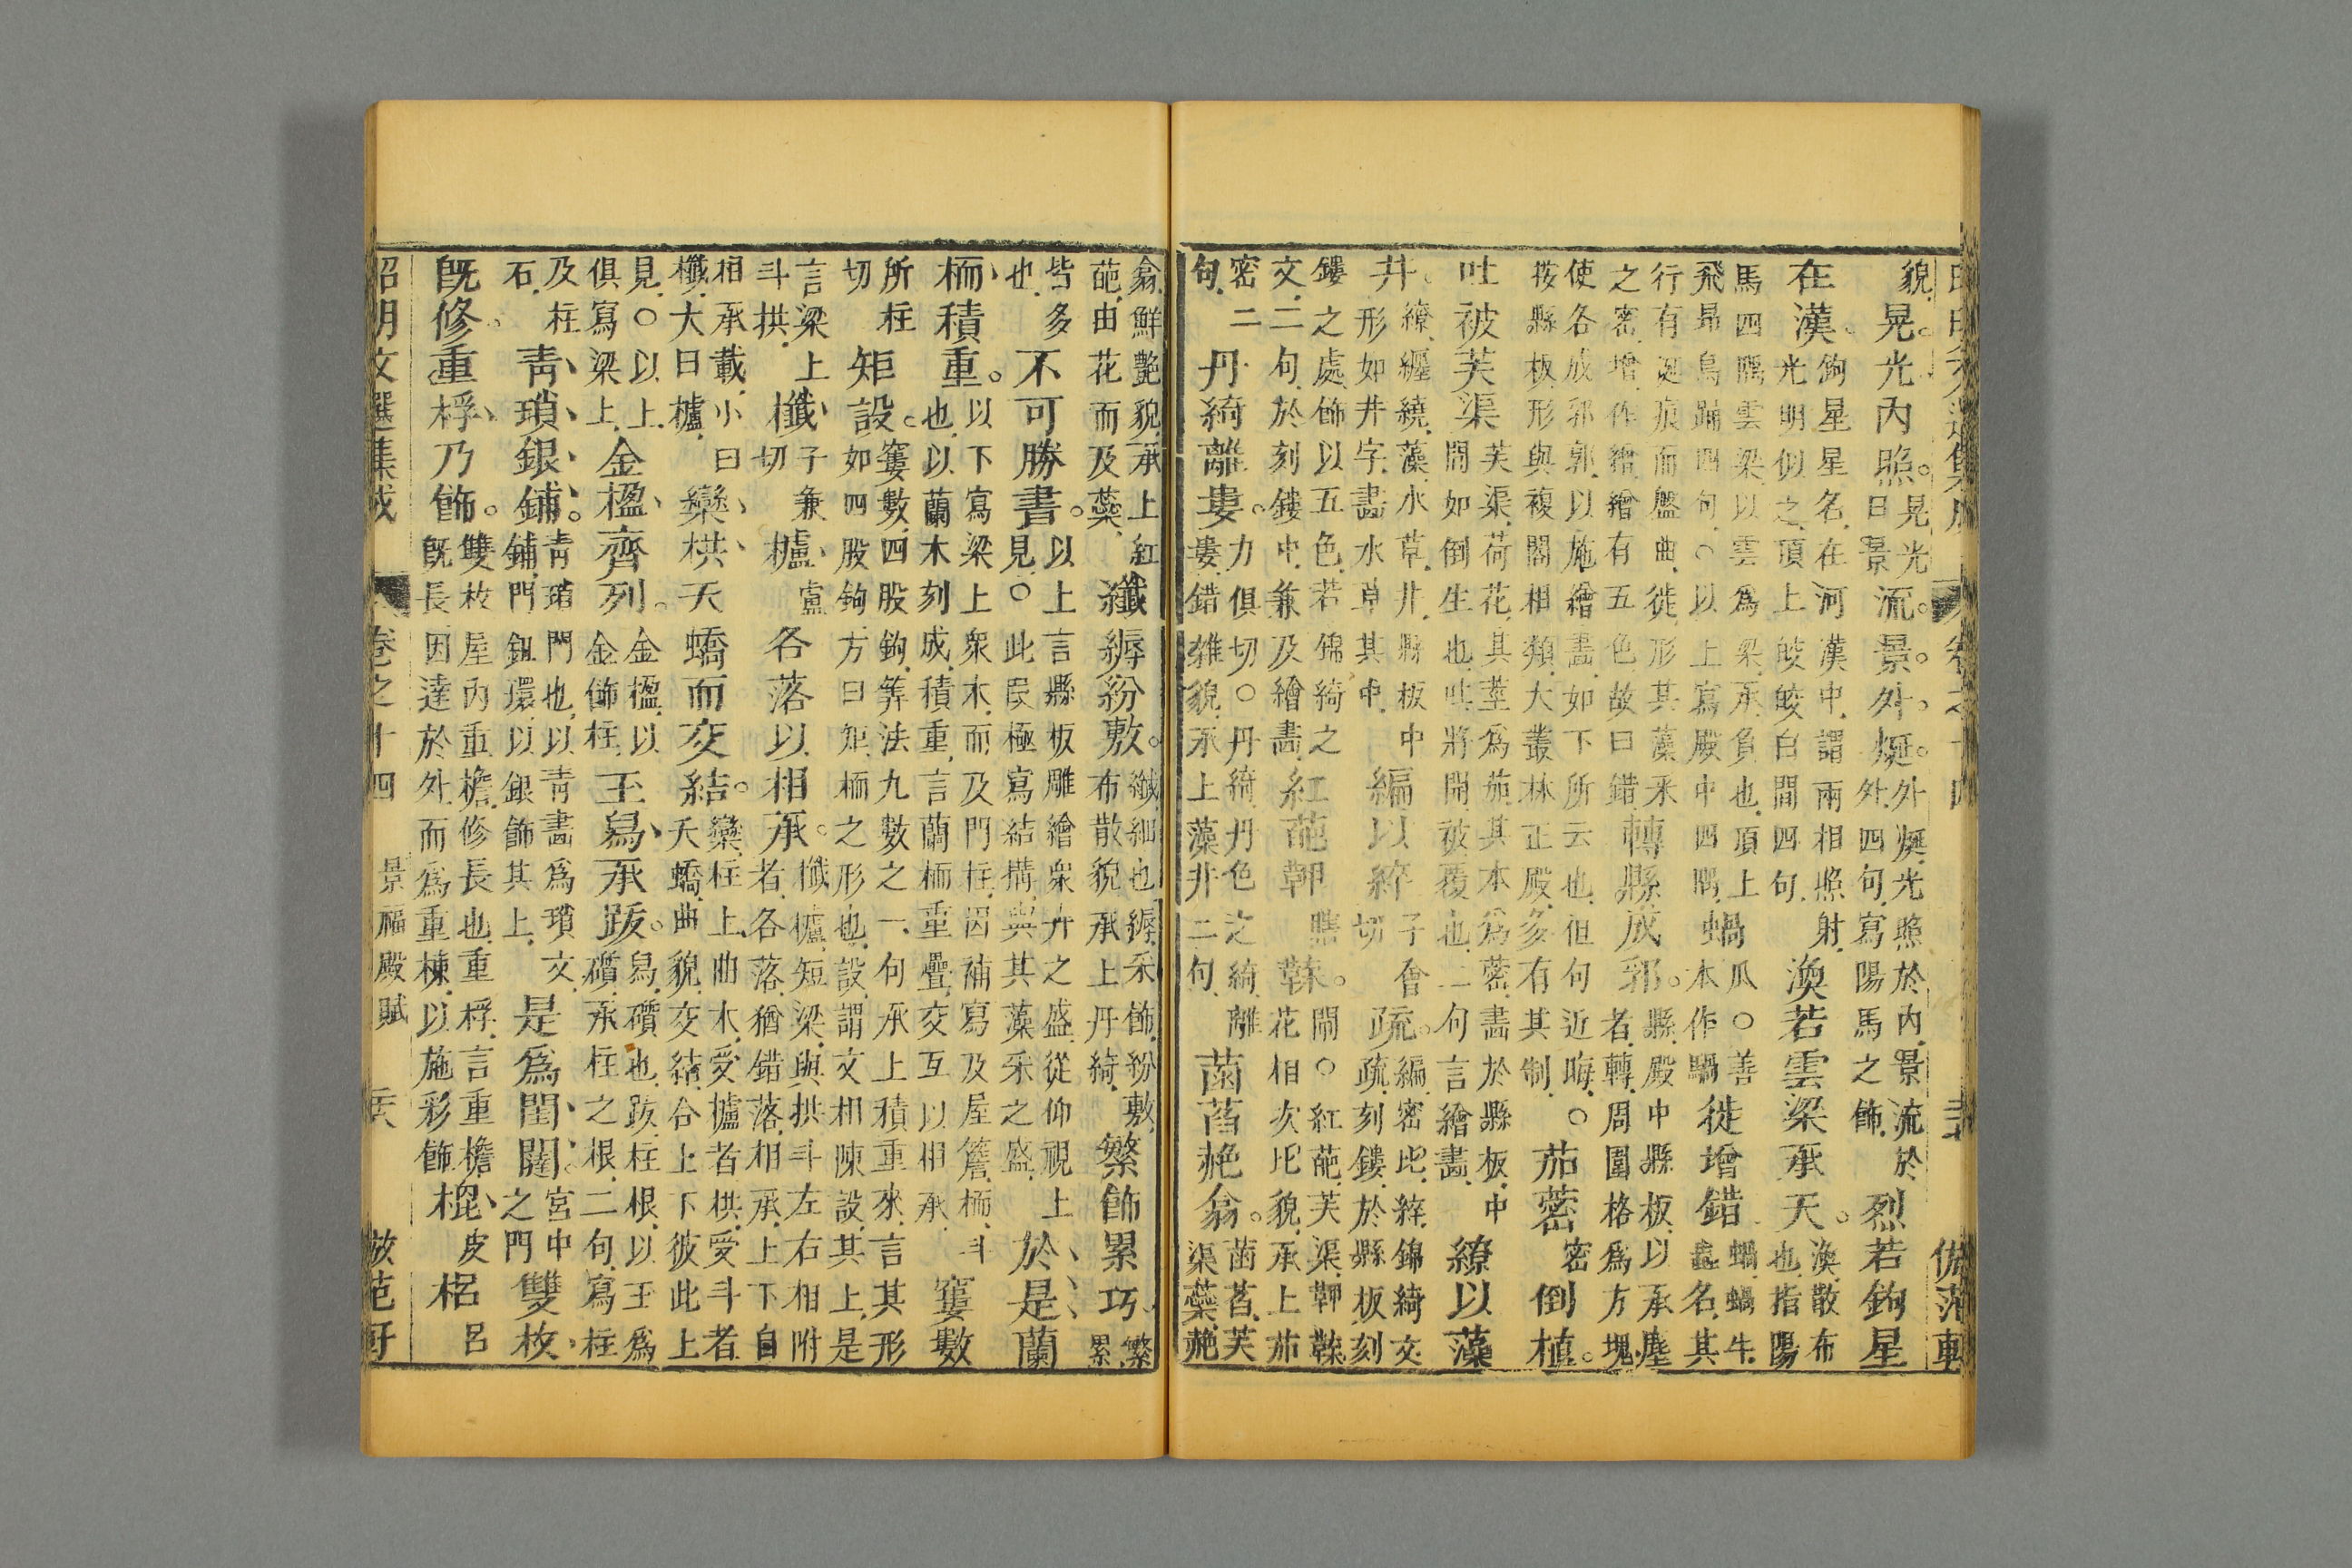 貌 晃光內照 晃光 日景 流景外烻 外烻光照於內景流於 外四句寫陽馬之飾 烈若鉤星
在漢 鉤星星名在河漢中謂兩相照射 光明似之頂上皎皎白間四句 渙若雲梁承天 渙散布 也指陽
馬四隅雲梁以雲為梁承負也頂上 飛昻鳥踊四句○以上寫殿中四隅 蝸 瓜○善 本作騧 徙增錯 蝸蝸牛 蟲名其
行有涎痕而盤曲徙形其藻釆 之密增作繒繒有五色故曰錯 轉縣成郛 縣殿中縣板以承塵 者轉周圍格為方塊
使各成郛郭以施繪畫如下所云也但句近晦○ 按縣板形與複閣相類大叢林正殿多有其制 茄蔤 密 倒植
吐被芙渠 芙渠荷花其莖為茄其本為蔤畫於縣板中 間如倒生也吐將開被覆也二句言繪畫 繚以藻
井 繚纏繞藻水草井縣板中 形如井字畫水草其中 編以綷 子會 切 疏 編密比綷錦綺交 疏刻鏤於縣板刻
鏤之處飾以五色若錦綺之 交二句於刻鏤中兼及繪畫 紅葩 䩞 𩋘 間○紅葩芙渠 花相次比貌承上茄
密二 句 丹綺離婁 力俱切○丹綺丹色之綺離 婁錯雜貌承上藻井二句 菡萏赩翕 菡萏芙 渠蘂赩
翕鮮艷貌承上紅 葩由花而及蘂 纖縟紛敷 纖細也縟釆飾紛敷 布散貌承上丹綺 繁飾累巧 繁 累
皆多 也 不可勝書 以上言縣板雕繪衆井之盛從仰視上 見○此段極寫結構與其藻釆之盛 於是蘭
栭積重 以下寫梁上衆木而及門柱因補寫及屋簷栭斗 也以蘭木刻成積重言蘭栭重疊交互以相承 窶數
所柱 切 矩設 窶數四股鉤筭法九數之一句承上積重來言其形 如四股鉤方曰矩栭之形也設謂交相陳設其上是
言梁上 斗拱 櫼 子兼 切 櫨 盧 各落以相承 櫼櫨短梁與拱斗左右相附 者各落猶錯落相承上下自
相承載小曰 櫼大曰櫨 欒栱夭蟜而交結 欒柱上曲木受櫨者栱受斗者 夭蟜曲貌交結合上下彼此上
見○以上 俱寫梁上 金楹齊列 金楹以 金飾柱 玉舄承跋 舄礩也跋柱根以玉為 礩承柱之根二句寫柱
及柱 石 青瑣銀鋪 青瑣門也以青畫為瑣文 鋪門鈕環以銀飾其上 是為閨闥 宮中 之門 雙枚
既修重桴乃飾 雙枚屋內重檐修長也重桴言重檐 既長因達於外而為重棟以施彩飾 㮰 皮 梠 呂
昭明文選集成 卷之十四 景福殿賦